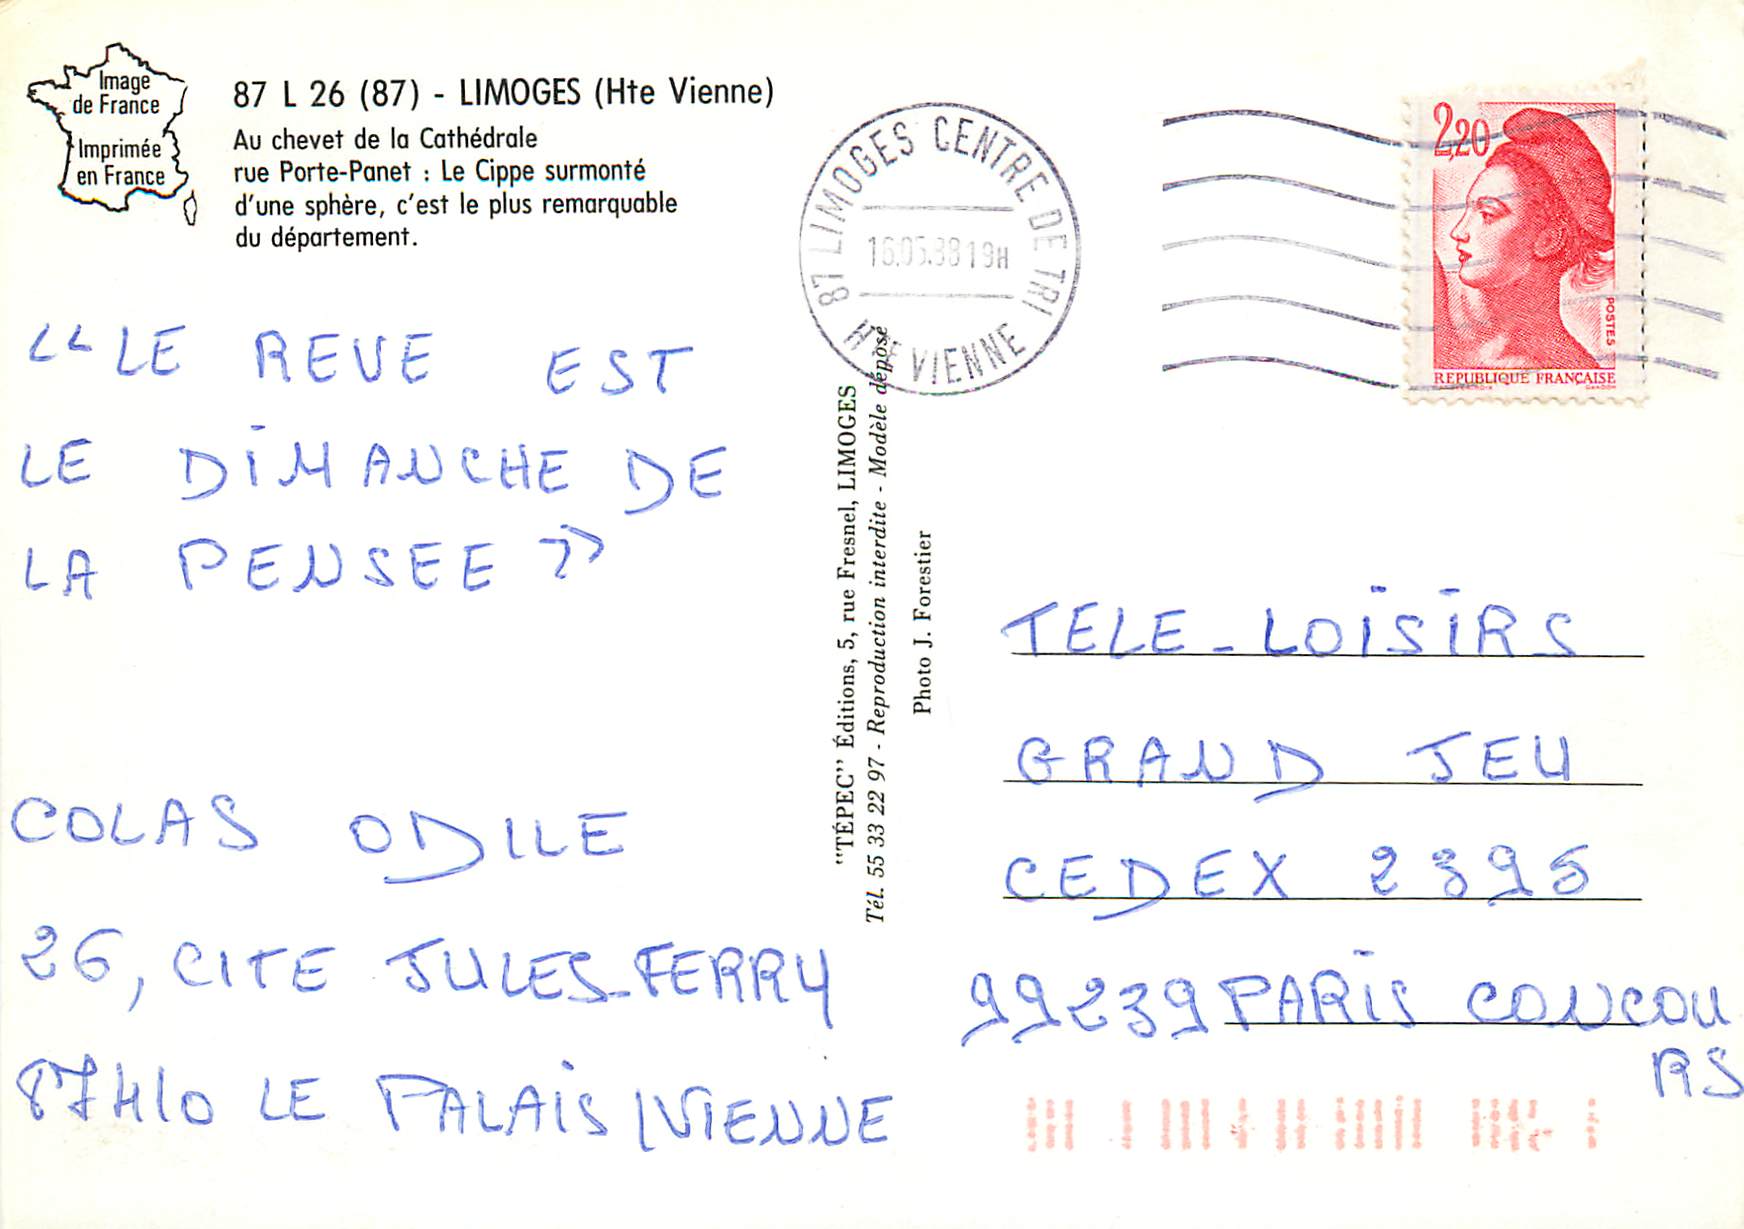 Image
de France
Imprimée
en France
87 L 26 (87) - LIMOGES (Hte Vienne)
Au chevet de la Cathédrale
rue Porte-Panet : Le Cippe surmonté
d'une sphère, c'est le plus remarquable
du département.
87 LIMOGES CENTRE DE TRI
16.05.88 19H
Hte VIENNE
2,20
POSTES
REPUBLIQUE FRANÇAISE
“LE REVE EST
LE DIMANCHE DE
LA PENSEE”
COLAS ODILE
26, CITE JULES-FERRY
87410 LE PALAIS/VIENNE
"TÉPEC" Éditions, 5, rue Fresnel, LIMOGES
Tél. 55 33 22 97 - Reproduction interdite - Modèle déposé
Photo J. Forestier
TELE-LOISIRS
GRAND JEU
CEDEX 2395
99239 PARIS CONCOU
RS